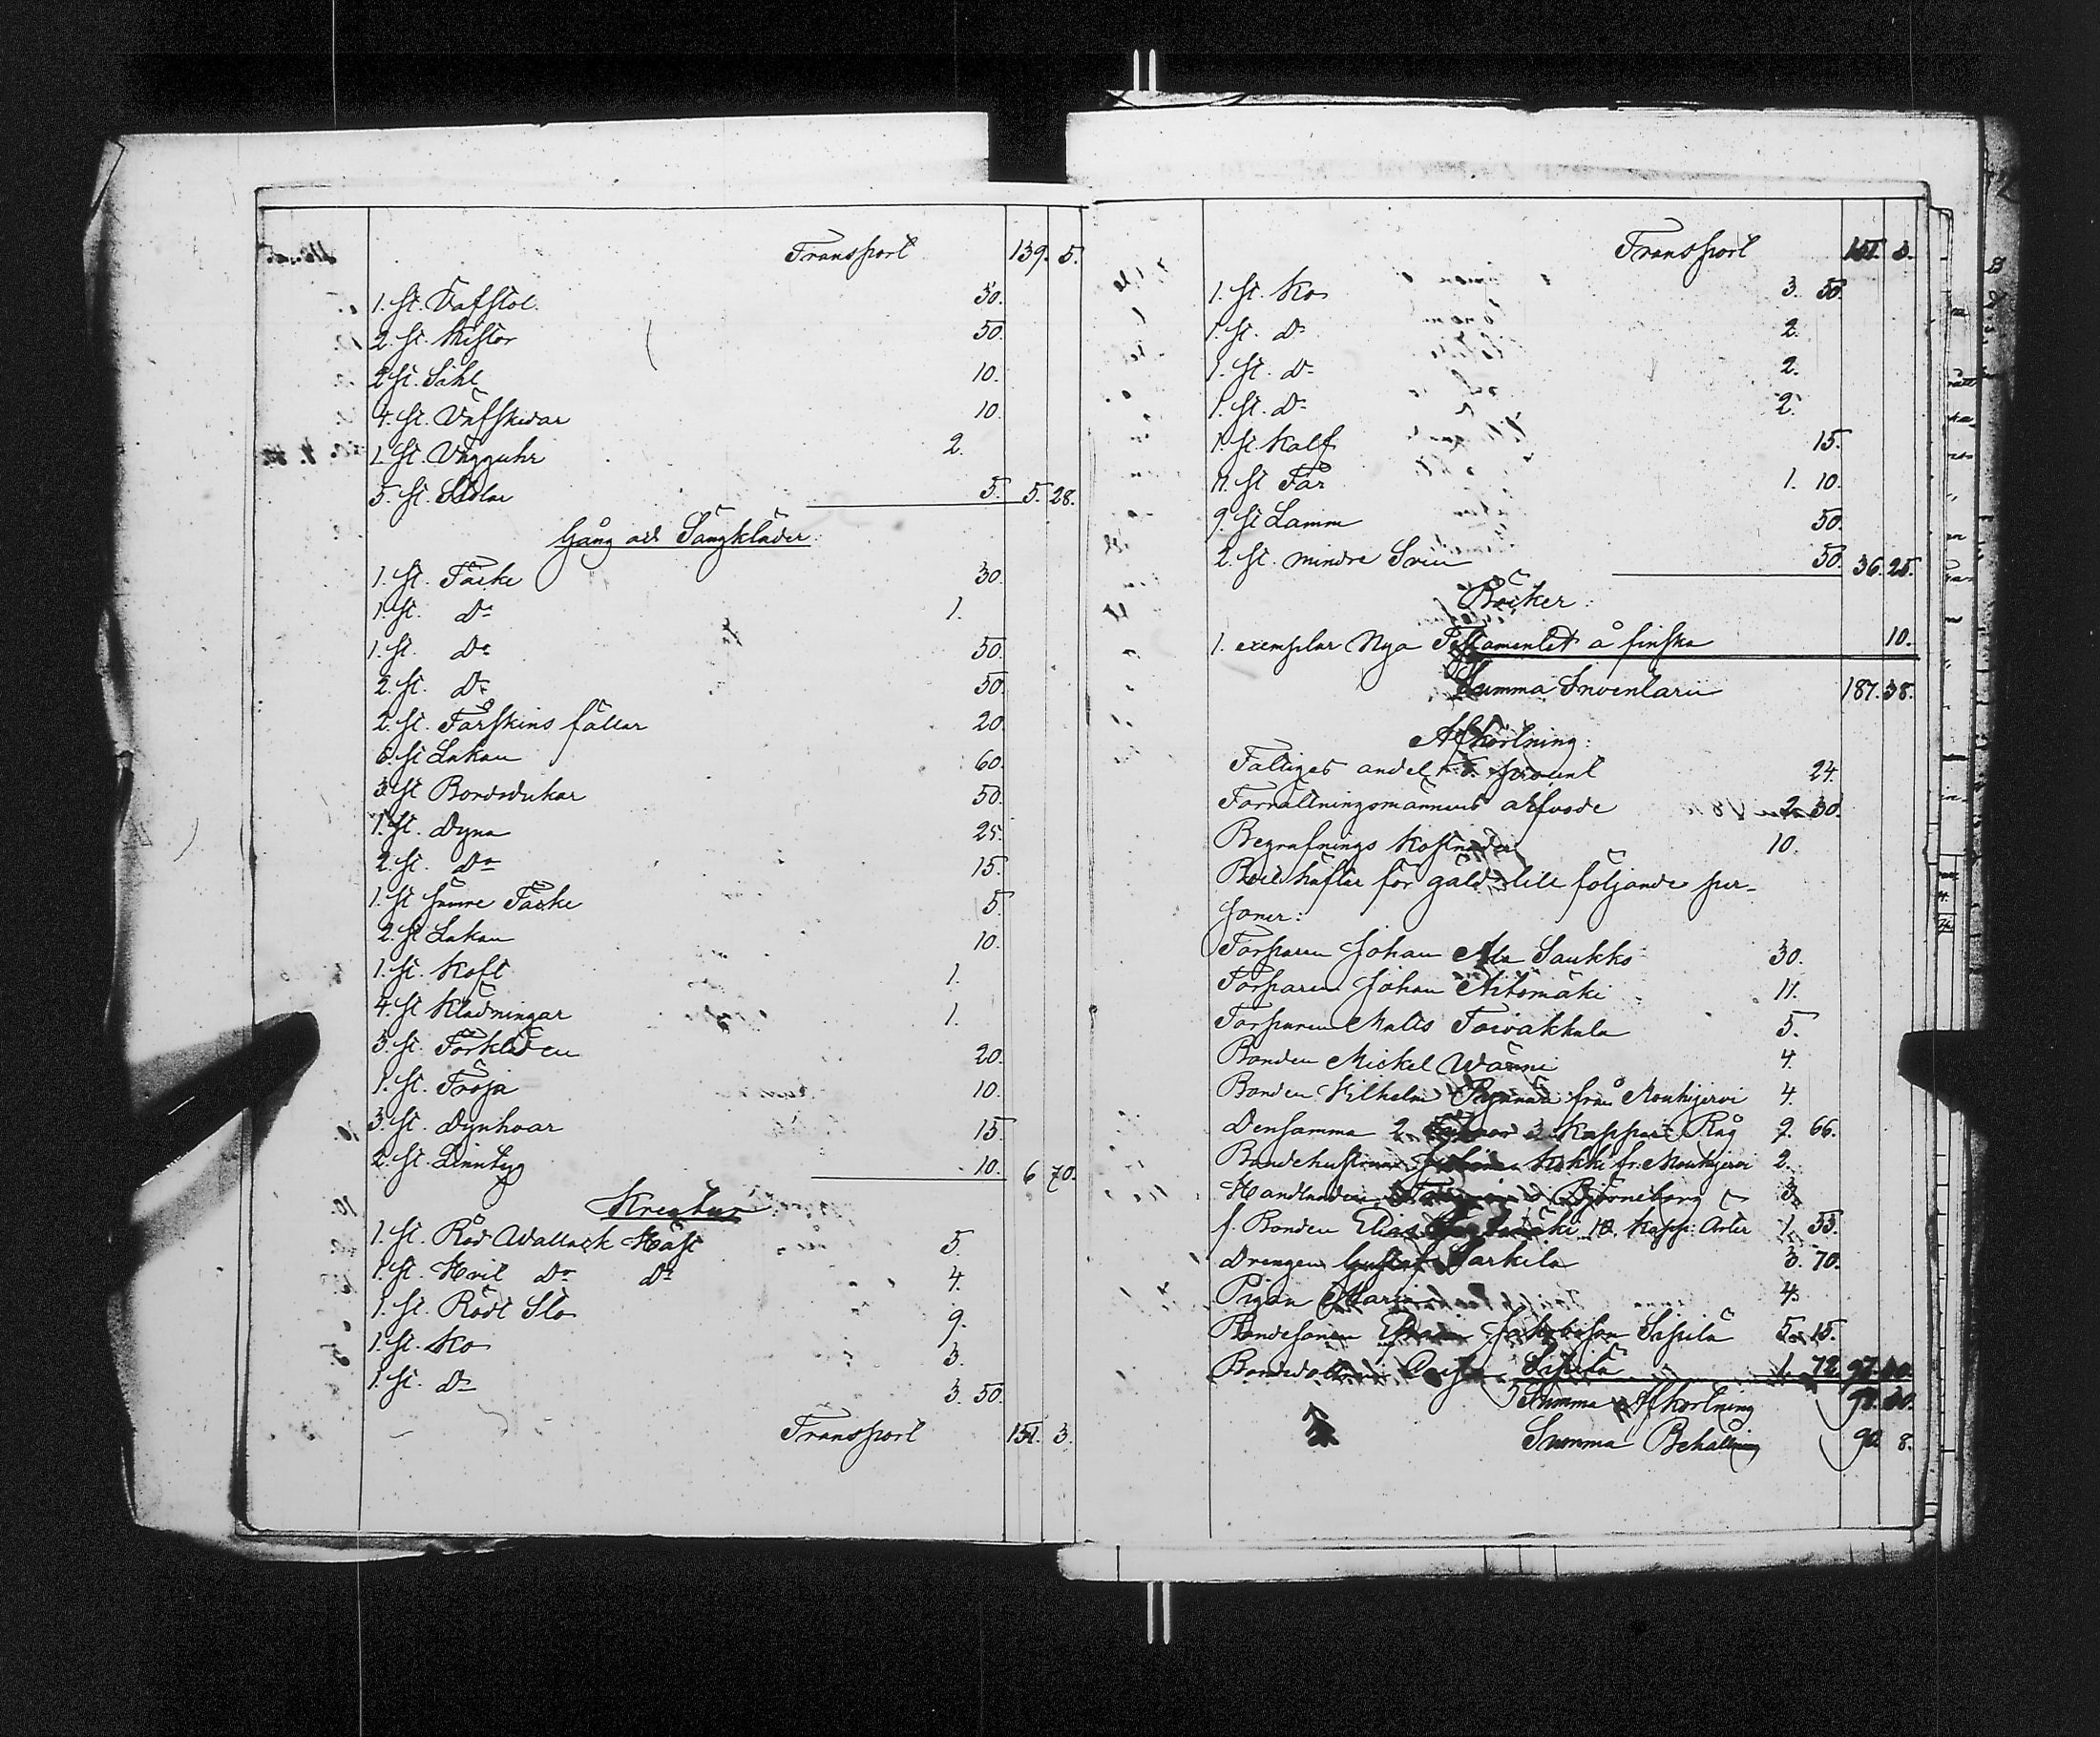 Transport 139. 5.
1. st. Väfstol 30.
2. st. Kistor 50.
2 st. Såhl 10.
4. st. Väfskedar 10.
1. st. Vägguhr 2.
5. st. Sedlar 5. 5. 28.
Gång och Sängkläder:
1. st. Täcke 30.
1. st. Do 1.
1. st. Do 50.
2. st. Do 50.
2. st. Fårskins fällar 20.
6. st Lakan 60.
3. st Bordsdukar 50.
1. st. Dyna 25.
2. st. Do 15.
1. st sämre Täcke 5.
2. st Lakan 10.
1. st. Koft 1.
4. st Klädningar 1.
3. st. Förkläden 20.
1. st. Tröja 10.
3. st. Dynhvar 15.
2. st. Linntyg 10. 6 70.
Kreatur
1. st. Röd Wallack Häst 5.
1. st. Hvit Do Do 4.
1. st. Rödt Sto 9.
1. st. Ko 3.
1. st. Do 3. 50.
Transport 151. 3.
Transport 151. 3.
1. st. Ko 3. 50.
1. st. Do 2.
1. st. Do 2.
1. st. Do 2.
1. st Kalf 15.
11. st Får 1. 10.
9. st Lamm 50.
2. st. mindre Svin 50. 36. 25.
Böcker:
1. exemplar Nya Testamentet å finska 10.
Summa Inventarii 187. 38.
Afkortning:
Fattiges andel procent 24.
Förrättningsmännens arfvode 2. 30.
Begrafnings kostnader 10.
Boet häftar för gäld till följande per-
soner:
Torparen Johan Ala Saukko 30.
Torparen Johan Äitömäki 11.
Torparen Matts Toivakkala 5.
Bonden Mickel Wänni 4.
Bonden Vilhelm från Mouhijervi 4.
Densamma 2 Kappar Råg 7. 66.
Bondehustrun fr. Mouhijervi 2.
Handlanden i Björneborg 3.
f. Bonden Elias 10. Kapp: Ärter 1. 55.
Drengen Gustaf Sarkila 3. 70.
Pigan Maria 4.
Bondesonen Jakobsson Sipilä 5. 15.
Bondedottren Sipilä 1. 72
Summa Afkortning
Summa Behållning 90 8.